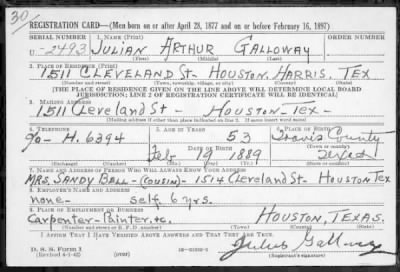 30
REGISTRATION CARD—(Men born on or after April 28, 1877 and on or before February 16, 1897)
SERIAL NUMBER
1. NAME (Print)
ORDER NUMBER
U 2493
JULIAN ARTHUR GALLOWAY
(First) (Middle) (Last)
2. PLACE OF RESIDENCE (Print)
1511 CLEVELAND ST- HOUSTON, HARRIS, TEX
(Number and street) (Town, township, village, or city) (County) (State)
[THE PLACE OF RESIDENCE GIVEN ON THE LINE ABOVE WILL DETERMINE LOCAL BOARD
JURISDICTION; LINE 2 OF REGISTRATION CERTIFICATE WILL BE IDENTICAL]
3. MAILING ADDRESS
1511 Cleveland St - Houston - Tex -
[Mailing address if other than place indicated on line 2. If same insert word same]
4. TELEPHONE
5. AGE IN YEARS
6. PLACE OF BIRTH
H. 6394
53
Travis County
DATE OF BIRTH
Feb- 19 1889
Texas
(Exchange) (Number)
(Mo.) (Day) (Yr.)
(State or country)
7. NAME AND ADDRESS OF PERSON WHO WILL ALWAYS KNOW YOUR ADDRESS
MRS. SANDY BALL - (COUSIN) - 1514 Cleveland St- Houston Tex
8. EMPLOYER'S NAME AND ADDRESS
none- self 6 yrs.
9. PLACE OF EMPLOYMENT OR BUSINESS
Carpenter - Painter, etc. HOUSTON, TEXAS.
(Number and street or R. F. D. number) (Town) (County) (State)
I AFFIRM THAT I HAVE VERIFIED ABOVE ANSWERS AND THAT THEY ARE TRUE.
D. S. S. Form 1
(Revised 4-1-42) (over)
(Registrant's signature)